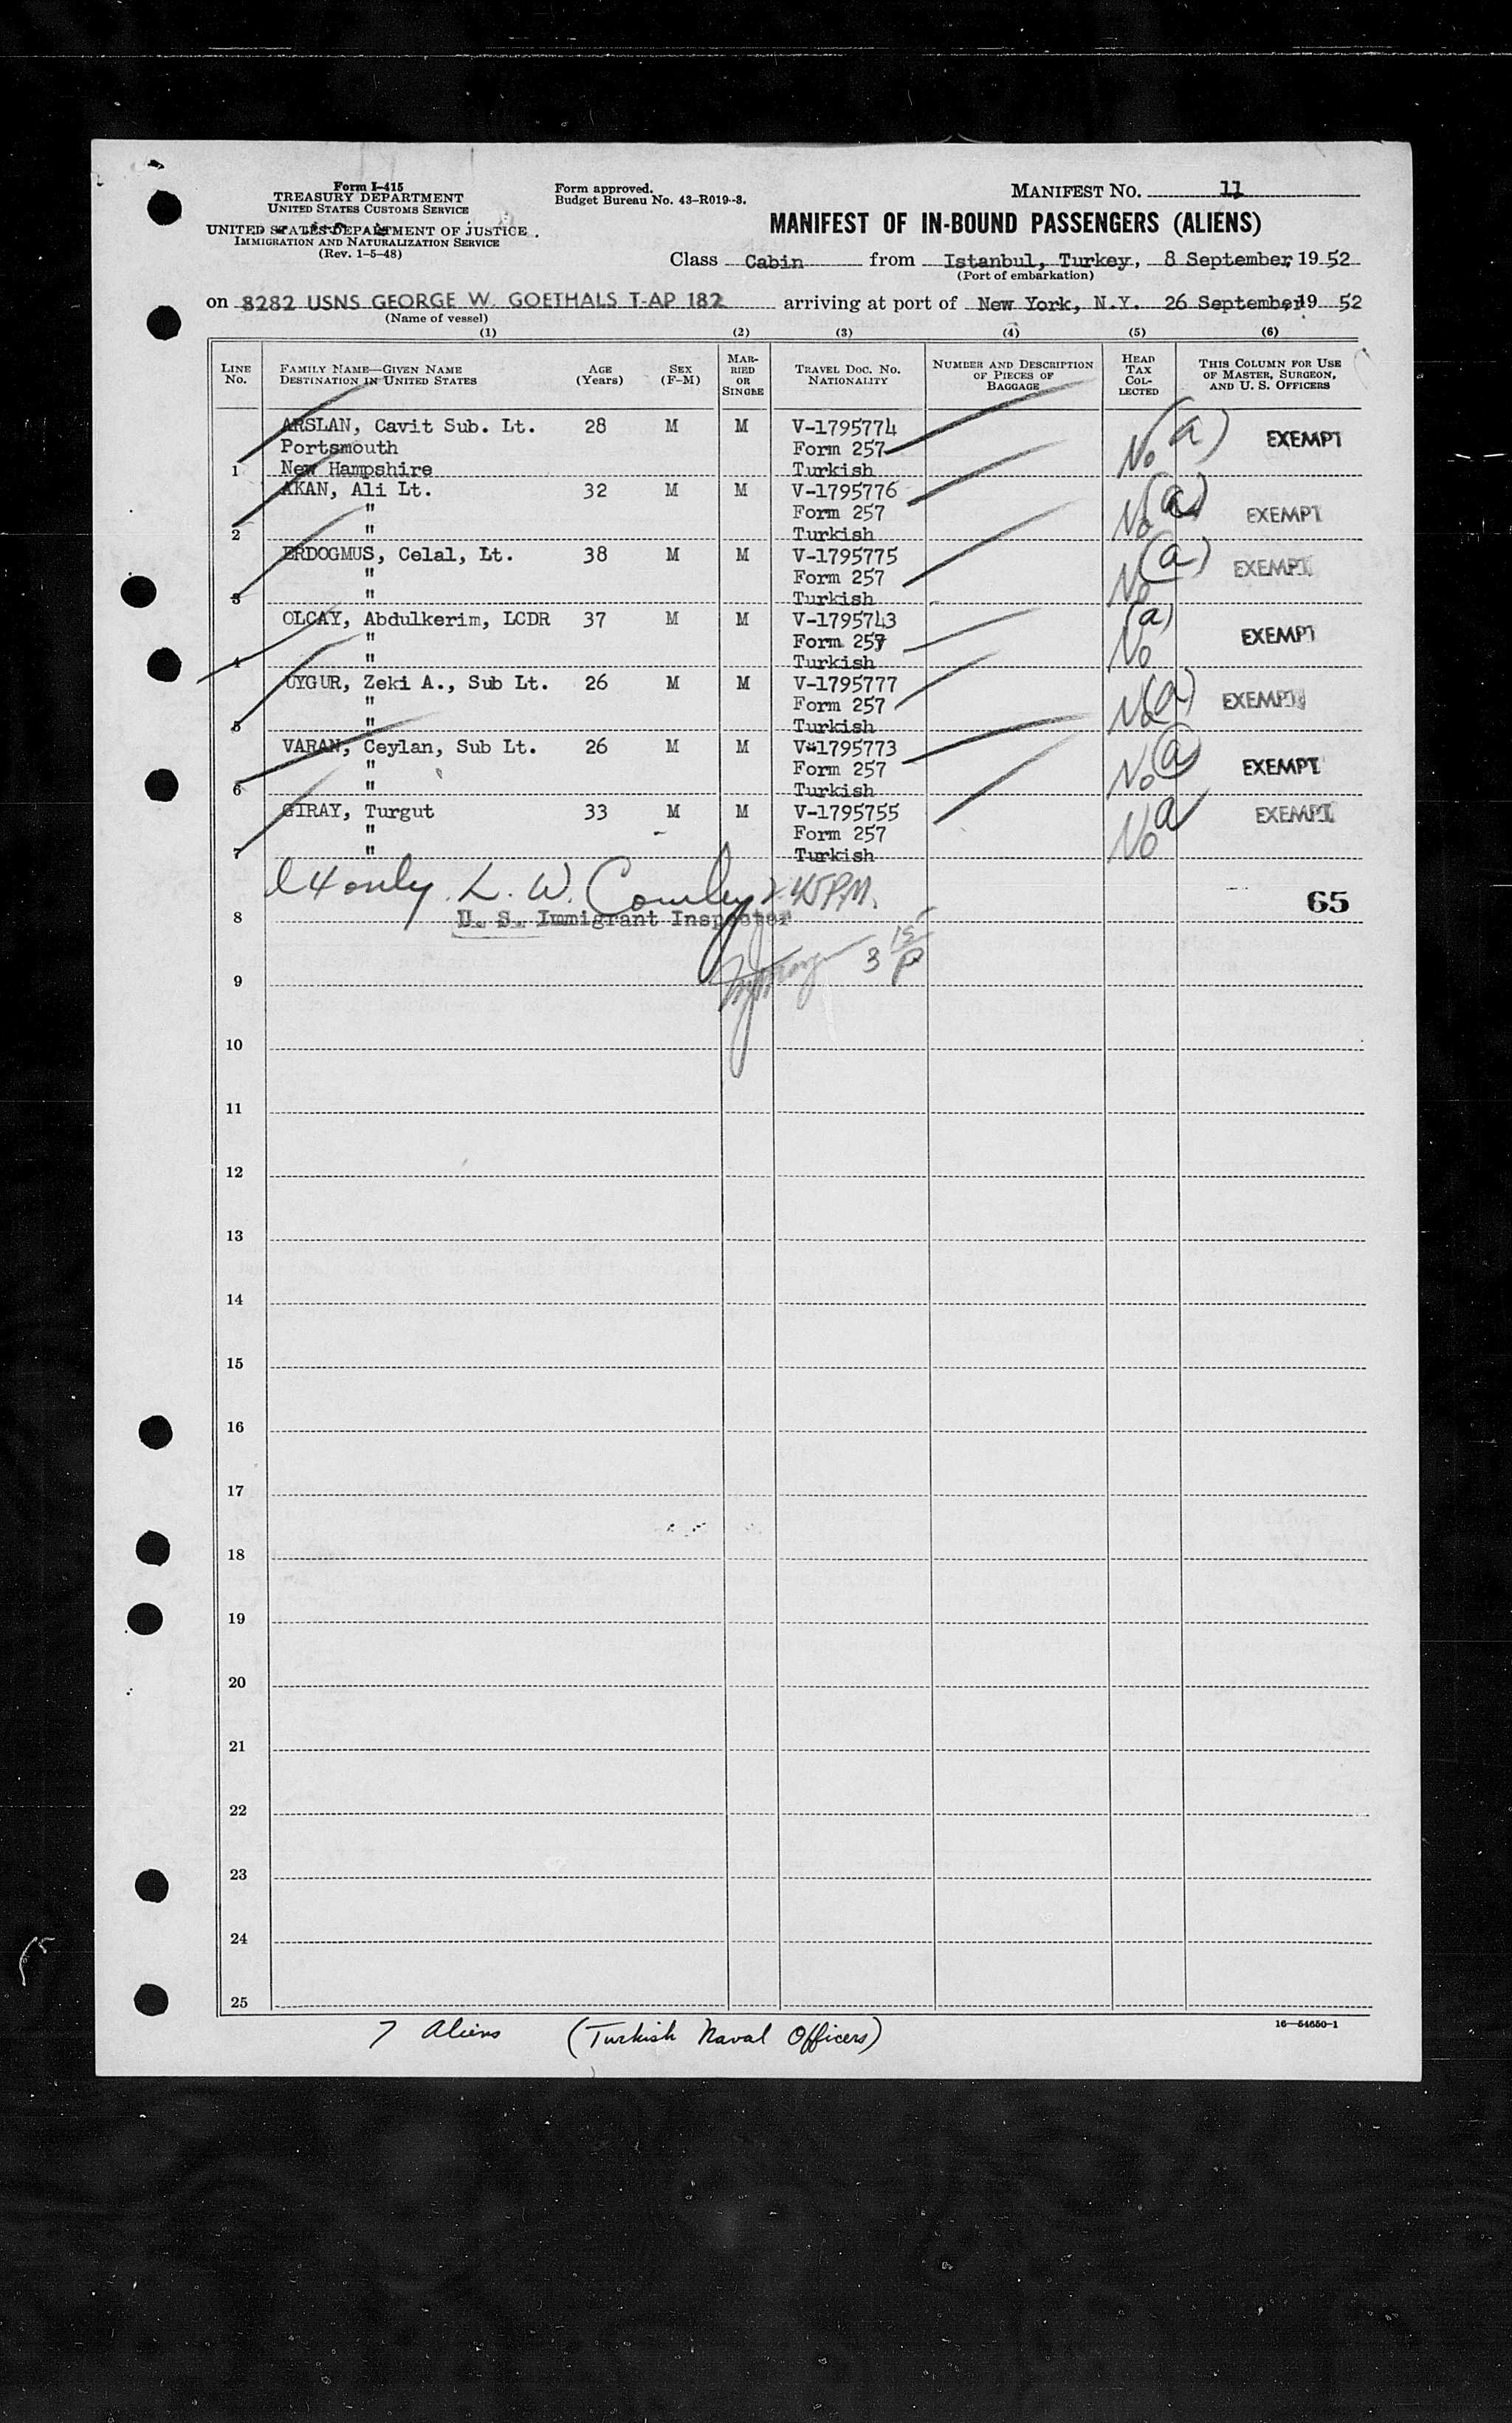 Form I-415
TREASURY DEPARTMENT
UNITED STATES CUSTOMS SERVICE
UNITED STATES DEPARTMENT OF JUSTICE
IMMIGRATION AND NATURALIZATION SERVICE
(Rev. 1-5-48)
Form approved.
Budget Bureau No. 43-R019-3.
MANIFEST NO. 11
MANIFEST OF IN-BOUND PASSENGERS (ALIENS)
Class Cabin from Istanbul, Turkey, 8 September, 19 52
(Port of embarkation)
on 8282 USNS GEORGE W. GOETHALS T-AP 182 arriving at port of New York, N.Y. 26 September, 19 52
(Name of vessel)
(1) (2) (3) (4) (5) (6)
LINE No. FAMILY NAME—GIVEN NAME DESTINATION IN UNITED STATES AGE (Years) SEX (F-M) MARRIED OR SINGLE TRAVEL DOC. NO. NATIONALITY NUMBER AND DESCRIPTION OF PIECES OF BAGGAGE HEAD TAX COLLECTED THIS COLUMN FOR USE OF MASTER, SURGEON, AND U. S. OFFICERS
ARSLAN, Cavit Sub. Lt. 28 M M V-1795774
Portsmouth Form 257 No (a) EXEMPT
1 New Hampshire Turkish
AKAN, Ali Lt. 32 M M V-1795776
" Form 257 No (a) EXEMPT
2 " Turkish
ERDOGMUS, Celal, Lt. 38 M M V-1795775
" Form 257 No (a) EXEMPT
3 " Turkish
OLCAY, Abdulkerim, LCDR 37 M M V-1795743
" Form 257 No (a) EXEMPT
4 " Turkish
UYGUR, Zeki A., Sub Lt. 26 M M V-1795777
" Form 257 No (a) EXEMPT
5 " Turkish
VARAN, Ceylan, Sub Lt. 26 M M V-1795773
" Form 257 No (a) EXEMPT
6 " Turkish
GIRAY, Turgut 33 M M V-1795755
" Form 257 No a EXEMPT
7 " Turkish
only L. W. PM.
65
8 U. S. Immigrant Inspector
3 15 P
9
10
11
12
13
14
15
16
17
18
19
20
21
22
23
24
25
7 Aliens (Turkish Naval Officers)
16—54650-1